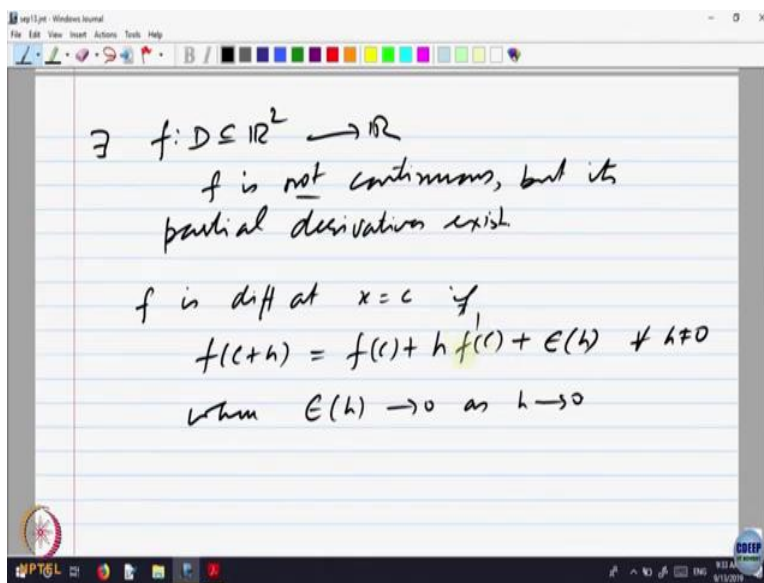 sep13.jnt - Windows Journal
File Edit View Insert Actions Tools Help
B I
∃ f: D ⊆ ℝ² → ℝ
f is not continuous, but its
partial derivatives exist.
f is diff at x = c if
f(c+h) = f(c) + h f'(c) + ε(h) ∀ h ≠ 0
when ε(h) → 0 as h → 0
NPTEL
CDEEP
IIT BOMBAY
ENG
9:33 AM
9/13/2019